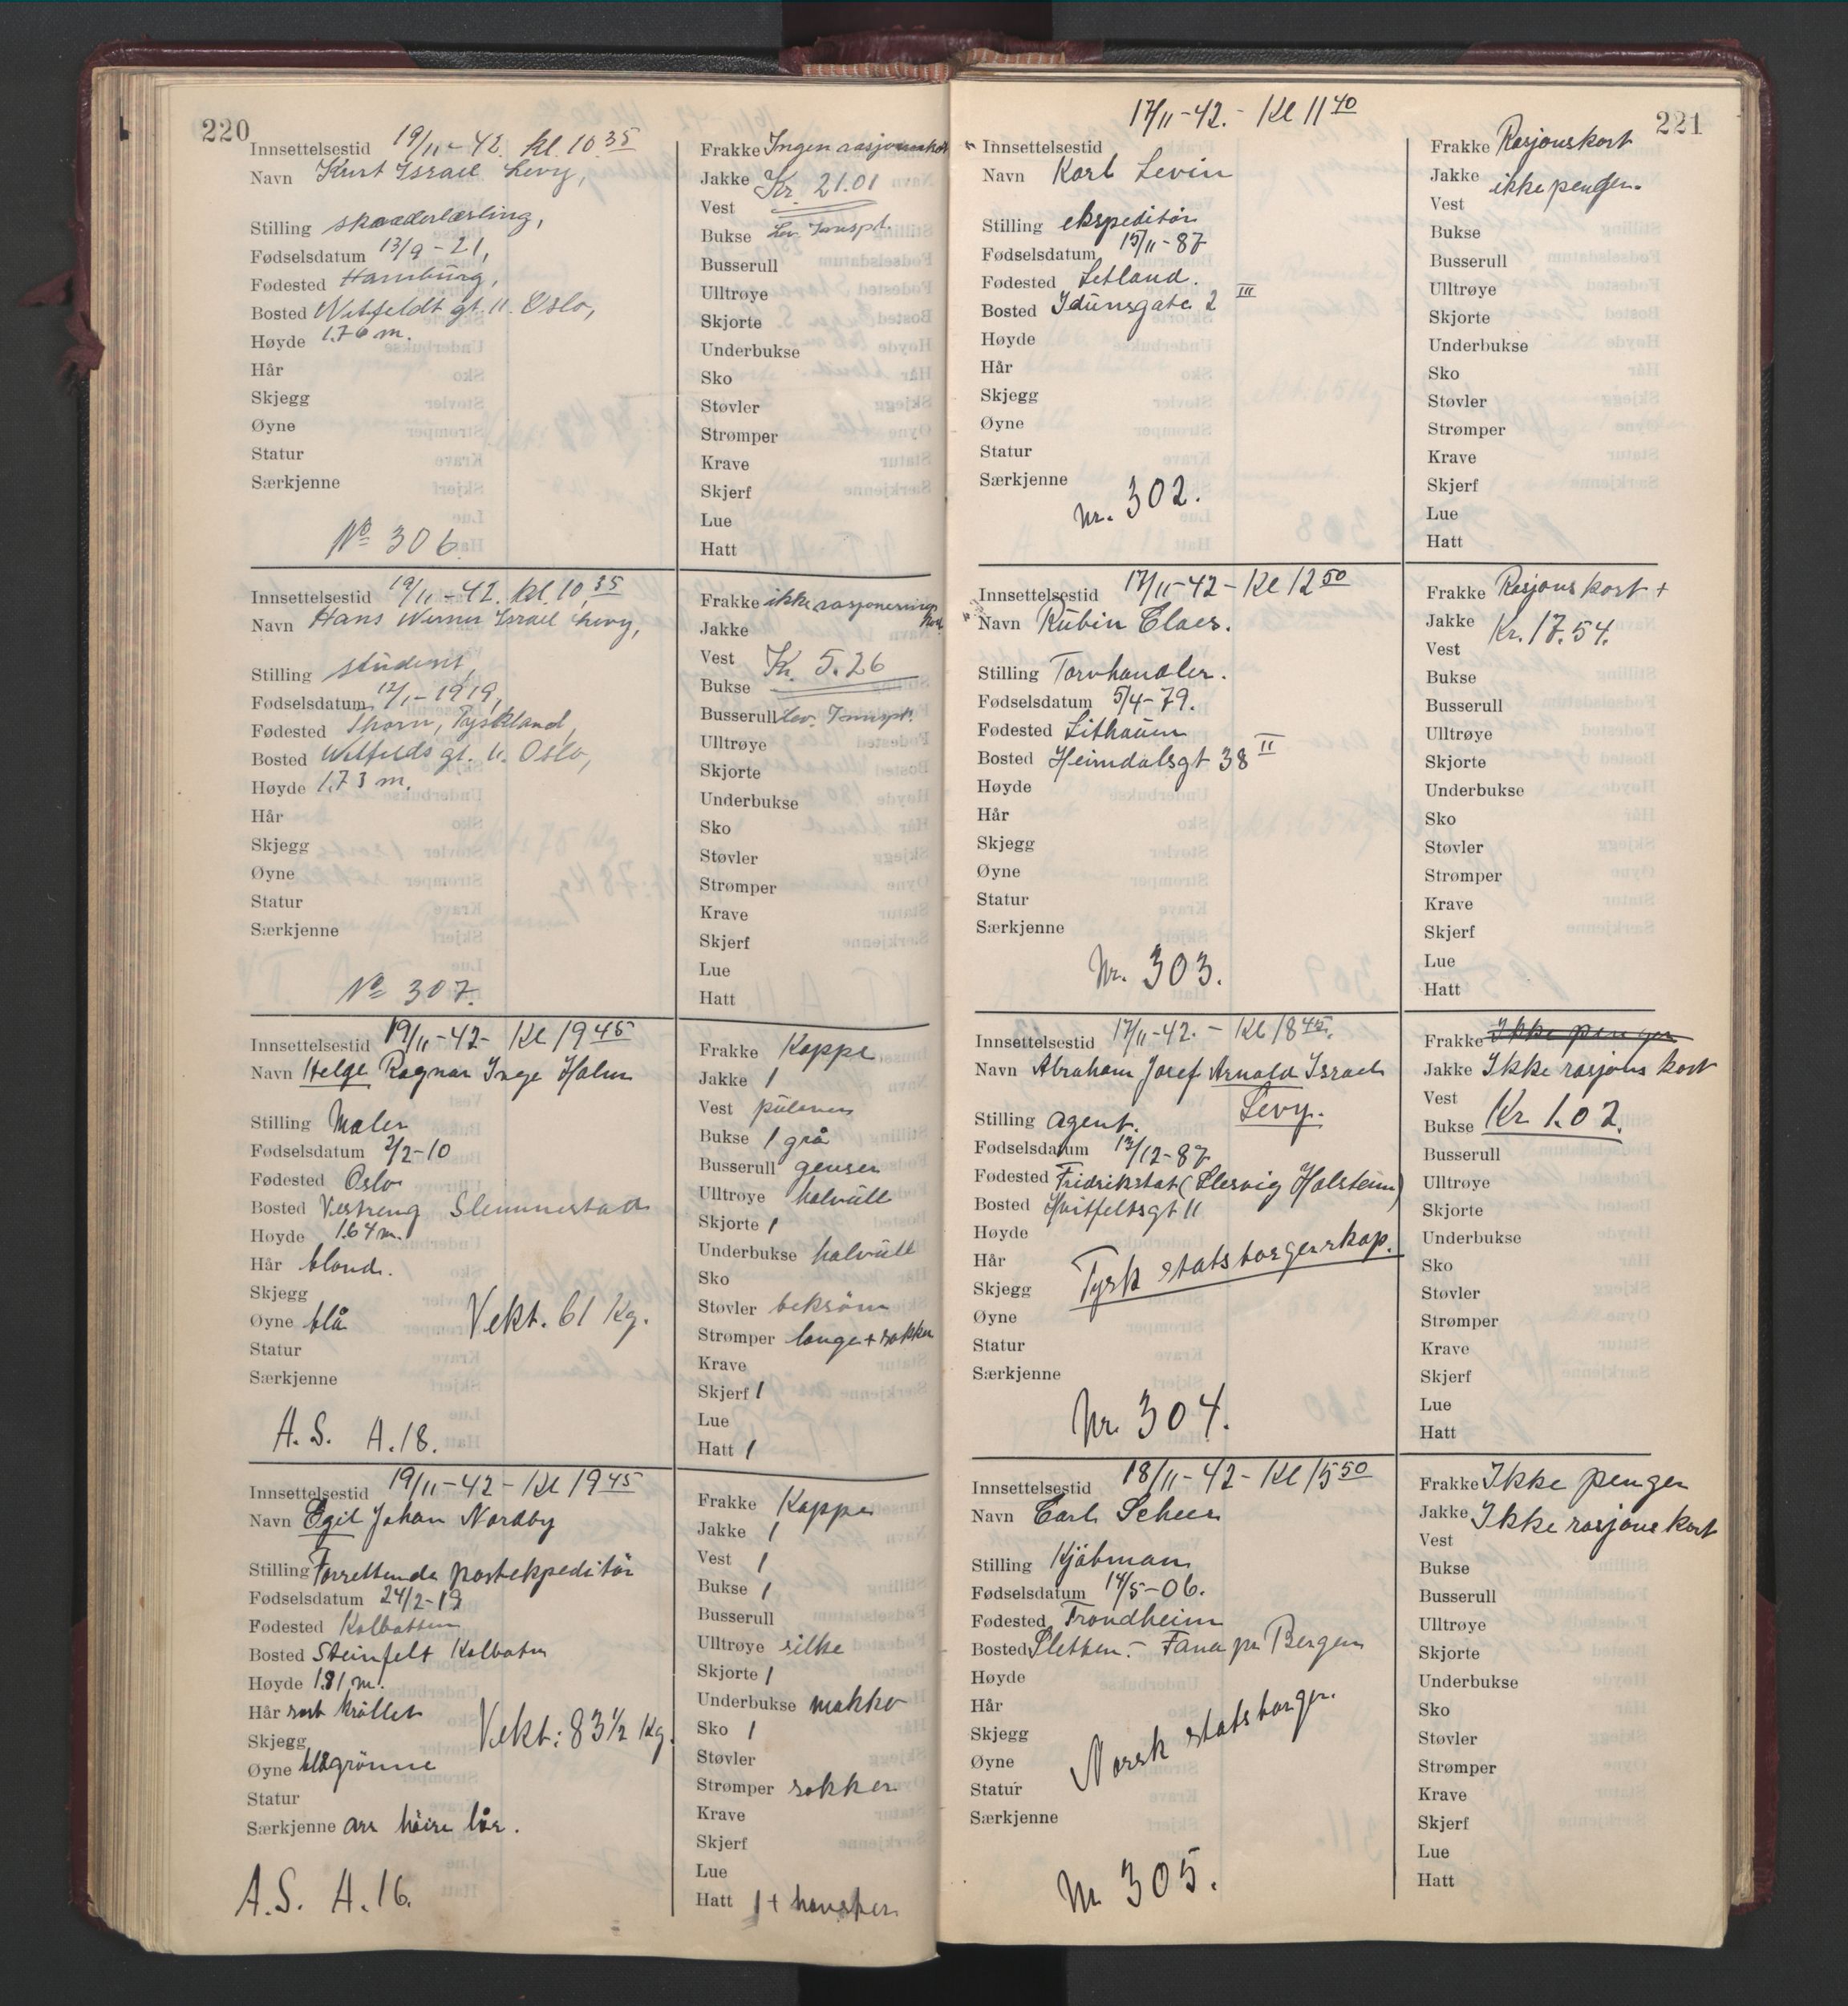 220
Innsettelsestid 19/11-42. kl. 10.35
Navn Kurt Israel Levy,
Stilling skrædderlærling,
Fødselsdatum 13/9-21,
Fødested Hamburg,
Bosted Witfeldt gt. 11. Oslo,
Høyde 1.76 m.
Hår
Skjegg
Øyne
Statur
Særkjenne
No 306.
Frakke Ingen rasjonskort
Jakke Kr. 21.01
Vest
Bukse Lev. Innspt.
Busserull
Ulltrøye
Skjorte
Underbukse
Sko
Støvler
Strømper
Krave
Skjerf
Lue
Hatt
Innsettelsestid 19/11-42. kl. 10,35
Navn Hans Werner Israel Levy,
Stilling student,
Fødselsdatum 12/1-1919,
Fødested Thorn, Tyskland,
Bosted Witfelds gt. 11. Oslo,
Høyde 1.73 m.
Hår
Skjegg
Øyne
Statur
Særkjenne
No 307.
Frakke ikke rasjonerings
kort
Jakke
Vest Kr. 5.26
Bukse
Busserull Lev. Innspt.
Ulltrøye
Skjorte
Underbukse
Sko
Støvler
Strømper
Krave
Skjerf
Lue
Hatt
Innsettelsestid 19/11-42- Kl 19 45
Navn Helge Ragnar Inge Holm
Stilling Maler
Fødselsdatum 2/2-10
Fødested Oslo
Bosted Vestreng Slemmestad
Høyde 1.64 m.
Hår blond.
Skjegg
Øyne blå Vekt. 61 Kg.
Statur
Særkjenne
A.S. A.18.
Frakke Kappe
Jakke 1
Vest pulover
Bukse 1 grå
Busserull genser
Ulltrøye halvull
Skjorte 1
Underbukse halvull
Sko
Støvler beksöm
Strømper lange + sokker
Krave
Skjerf 1
Lue
Hatt 1
Innsettelsestid 19/11-42- Kl 19 45
Navn Egil Johan Nordby
Stilling Forrettende postekpeditör
Fødselsdatum 24/2-19
Fødested Kolbotten
Bosted Steinfelt Kolbotn
Høyde 1.81 m.
Hår sort kröllet
Skjegg Vekt: 83 1/2 Kg.
Øyne blågrönne
Statur
Særkjenne arr höire lår.
A.S. A.16.
Frakke Kappe
Jakke 1
Vest 1
Bukse 1
Busserull
Ulltrøye silke
Skjorte 1
Underbukse makko
Sko 1
Støvler
Strømper sokker
Krave
Skjerf
Lue
Hatt 1 + hansker
221
17/11-42.- Kl 11 40
Innsettelsestid
Navn Karl Levin
Stilling ekspeditör
Fødselsdatum 15/11-87
Fødested Letland.
Bosted Idunsgate 2 III
Høyde
Hår
Skjegg
Øyne
Statur
Særkjenne
Nr. 302.
Frakke Rasjonskort
Jakke ikke penger.
Vest
Bukse
Busserull
Ulltrøye
Skjorte
Underbukse
Sko
Støvler
Strømper
Krave
Skjerf
Lue
Hatt
Innsettelsestid 17/11-42- Kl 12 50
Navn Rubin Claes.
Stilling Torvhandler.
Fødselsdatum 5/4-79.
Fødested Lithauen
Bosted Heimdalsgt 38 II
Høyde
Hår
Skjegg
Øyne
Statur
Særkjenne
Nr. 303.
Frakke Rasjonskort +
Jakke Kr. 17.54.
Vest
Bukse
Busserull
Ulltrøye
Skjorte
Underbukse
Sko
Støvler
Strømper
Krave
Skjerf
Lue
Hatt
Innsettelsestid 17/11-42.- Kl 18 45.
Navn Abraham Josef Arnold Israel
Levy.
Stilling agent.
Fødselsdatum 13/12-87
Fødested Fridrikstat (Slesvig Holstein)
Bosted Hvitfeltsgt 11
Høyde
Hår Tysk statsborgerskap.
Skjegg
Øyne
Statur
Særkjenne
Nr. 304.
Frakke Ikke penger
Jakke Ikke rasjons kort
Vest
Bukse Kr 1.02.
Busserull
Ulltrøye
Skjorte
Underbukse
Sko
Støvler
Strømper
Krave
Skjerf
Lue
Hatt
Innsettelsestid 18/11-42- Kl 15 50
Navn Carl Scheer
Stilling Kjöbmann
Fødselsdatum 14/5-06.
Fødested Trondheim
Bosted Sletten.- Fana pr Bergen
Høyde
Hår
Skjegg Norsk statsborger.
Øyne
Statur
Særkjenne
Nr 305.
Frakke Ikke penger
Jakke Ikke rasjons kort
Vest
Bukse
Busserull
Ulltrøye
Skjorte
Underbukse
Sko
Støvler
Strømper
Krave
Skjerf
Lue
Hatt